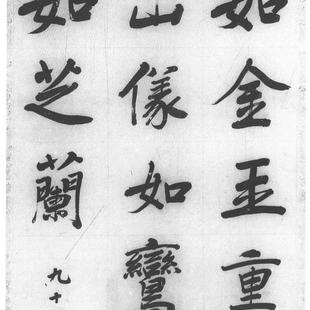 如金玉重
山儀如鸞
如芝蘭
九十